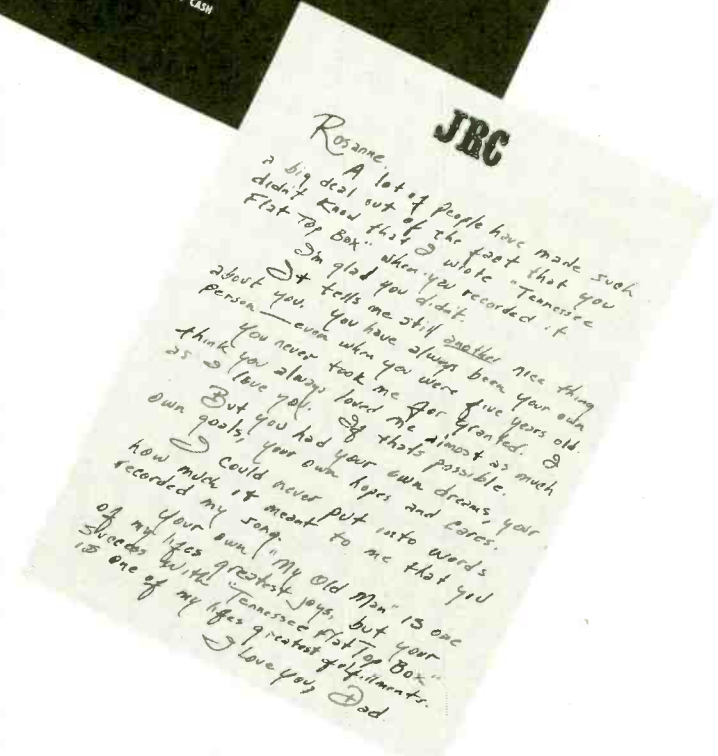 CASH
JRC
Rosanne.
A lot of people have made such
a big deal out of the fact that you
didn't know that I wrote "Tennessee
Flat Top Box" when you recorded it
I'm glad you didn't.
It tells me still another nice thing
about you. You have always been your own
person — even when you were five years old.
You never took me for granted. I
think you always loved me almost as much
as I love you. If thats possible.
But you had your own dreams, your
own goals, your own hopes and cares.
I could never put into words
how much it meant to me that you
recorded my song.
Your own "My Old Man" is one
of my lifes greatest joys, but your
success with "Tennessee Flat Top Box"
is one of my lifes greatest fulfillments.
I love you, Dad